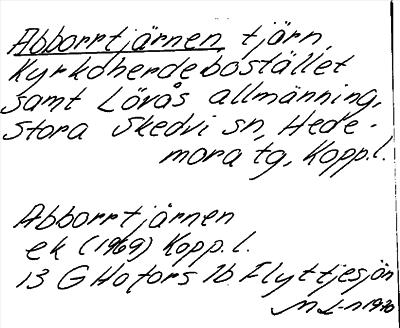 Abborrtjärnen, tjärn,
Kyrkoherdebostället
samt Lövås allmänning,
Stora Skedvi sn, Hede-
mora tg, Kopp.l.
Abborrtjärnen
ek (1969) Kopp.l.
13 G Hofors 1b Flyttjesjön
1970